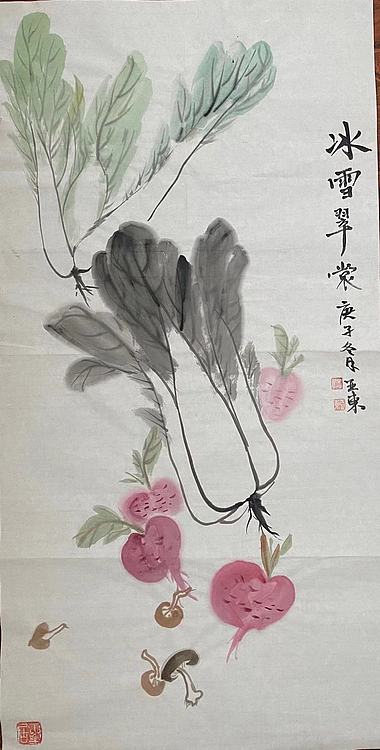 冰雪翠裳
庚子冬月亚东